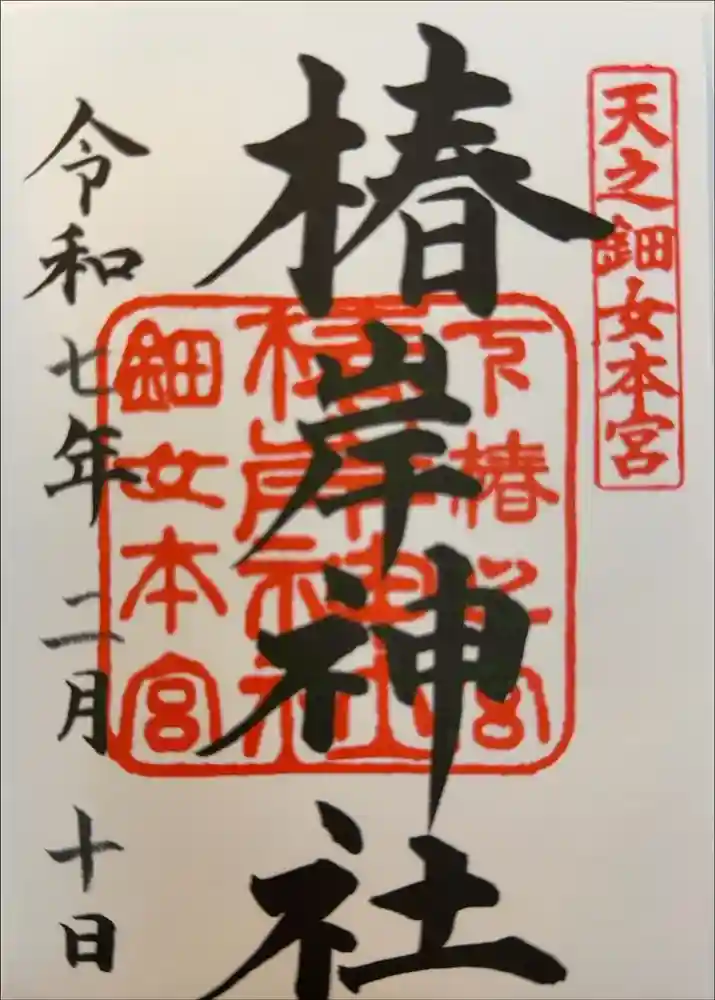 天之鈿女本宮
椿岸神社
下椿之宮
椿岸神社
鈿女本宮
令和七年二月十日